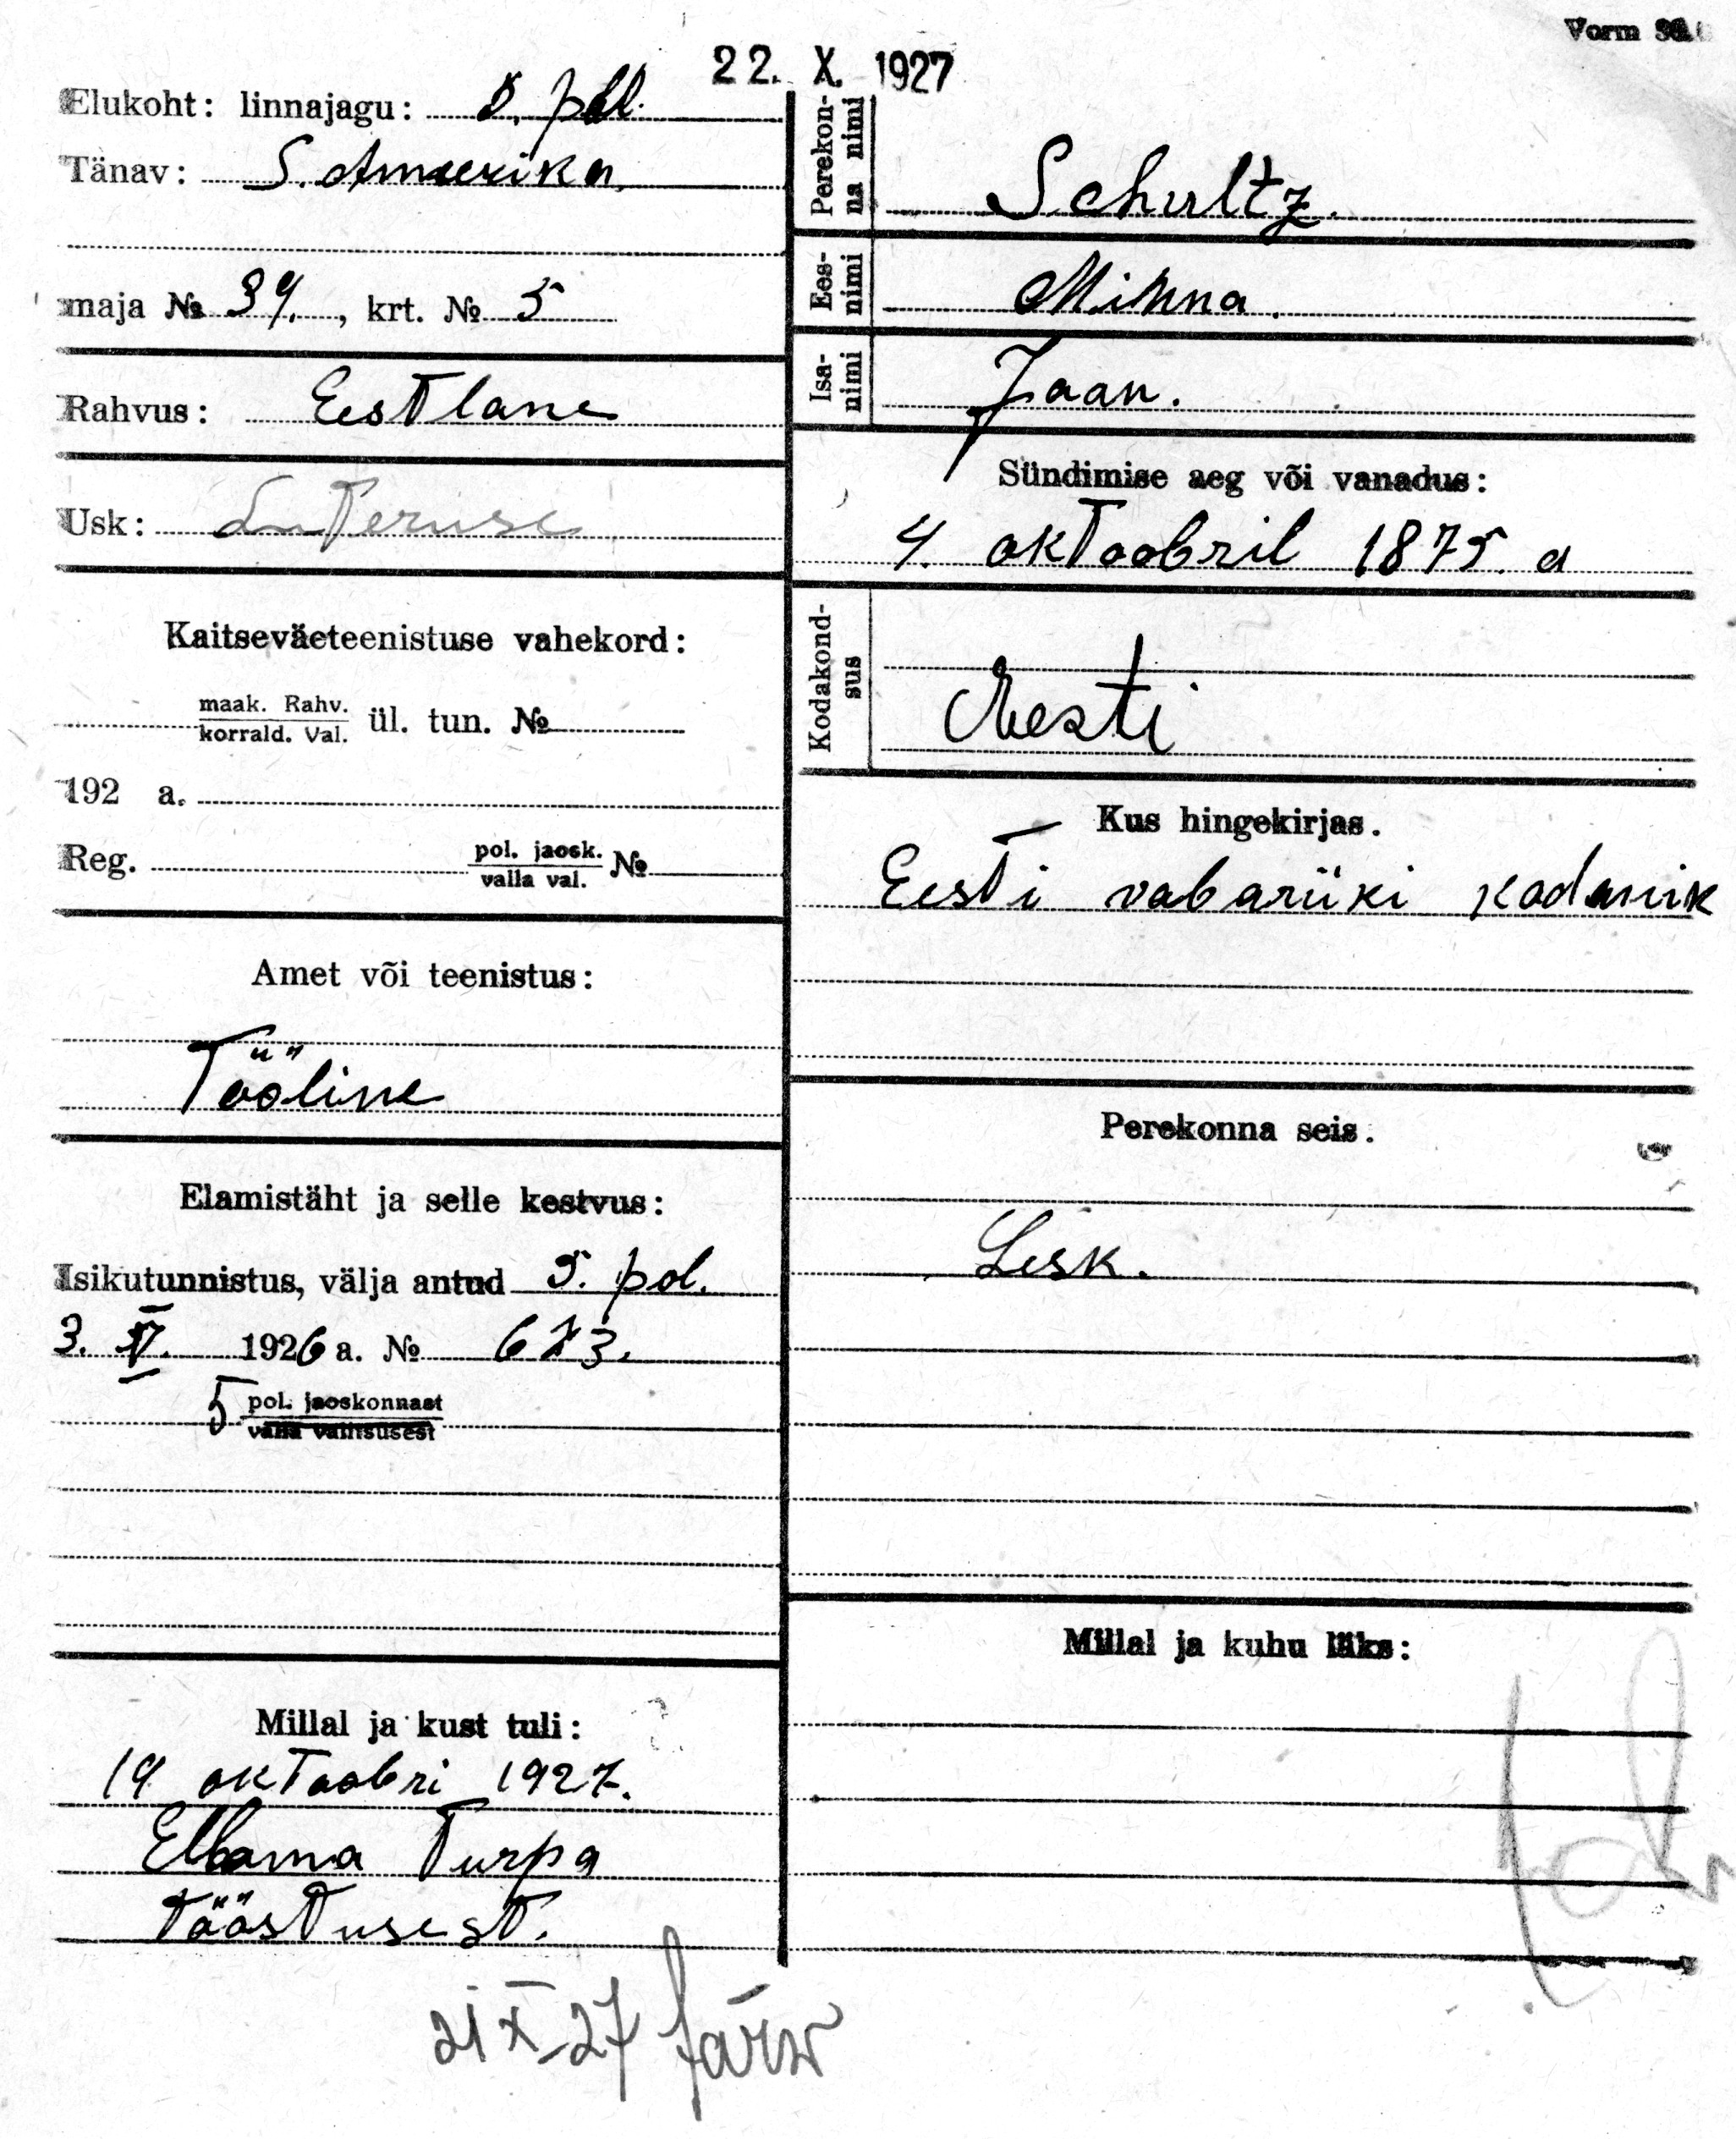 Vorm
22. X. 1927
Elukoht: linnajagu: 5. pol.
Tänav: S. Ameerika
maja № 34., krt. № 5
Rahvus: Eestlane
Usk: Luteruse
Kaitseväeteenistuse vahekord:
maak. Rahv.
korrald. Val. ül. tun. №
192 a.
Reg. pol. jaosk.
valla val. №
Amet või teenistus:
Tööline
Elamistäht ja selle kestvus:
Isikutunnistus, välja antud 5. pol.
3. 1926 a. №
5 pol. jaoskonnast
valla valitsusest
Millal ja kust tuli:
19 oktoobri 1927.
Ellama Turpa
tööstusest.
21 X 27 Järw
Perekon-
na nimi
Schultz.
Ees-
nimi
Minna.
Isa-
nimi
Jaan.
Sündimise aeg või vanadus:
4. oktoobril 1875. a
Kodakond-
sus
Eesti
Kus hingekirjas.
Eesti vabariiki kodanik
Perekonna seis.
Lesk.
Millal ja kuhu läks: